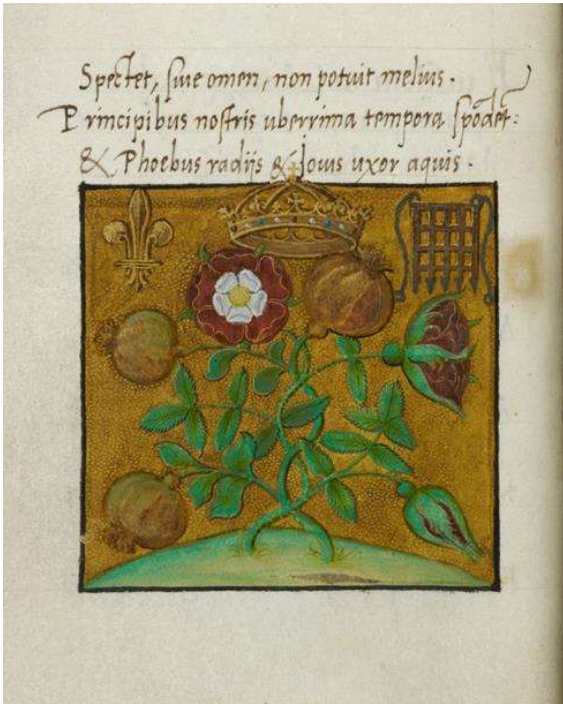 Spectet, siue omen, non potuit melius.
Principibus nostris uberrima tempora spōdēt:
& Phoebus radijs & Iouis uxor aquis.